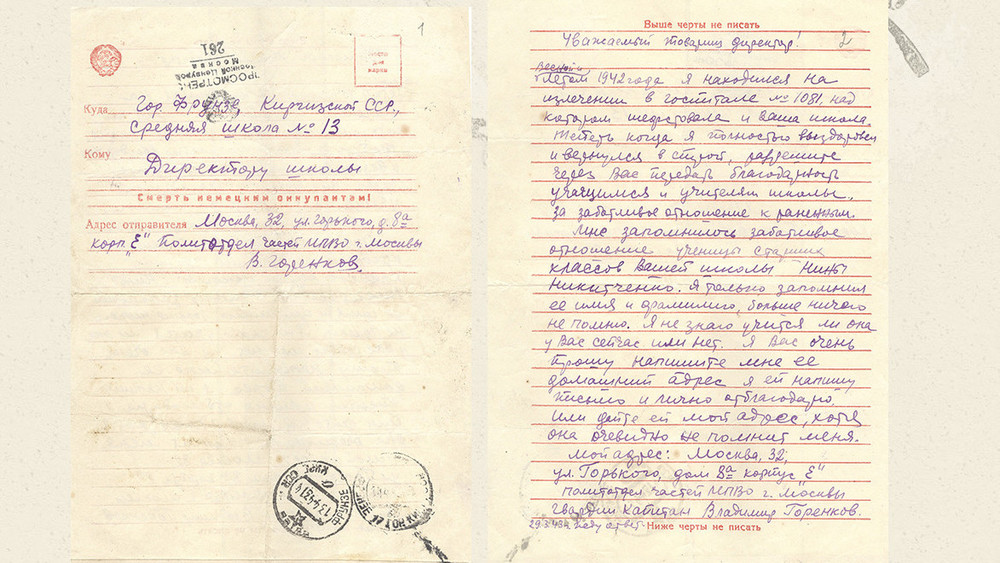 1
ПРОСМОТРЕНО
Военной Цензурой
Москва
261
Куда Гор. Фрунзе, Киргизской ССР,
средняя школа № 13
Кому
Директору школы
Смерть немецким оккупантам!
Адрес отправителя Москва, 32, ул. Горького, д. 8а
корп. "Е" Политотдел частей МПВО г. Москвы
В. Горенков
ФРУНЗЕ
КИРГ. ССР
Выше черты не писать
2
Уважаемый товарищ директор!
Весной и
летом 1942 года я находился на
излечении в госпитале № 1081, над
которым шефствовала и Ваша школа.
Теперь когда я полностью выздоровел
и вернулся в строй, разрешите
через Вас передать благодарность
учащимся и учителям школы
за заботливое отношение к раненым.
Мне запомнилось заботливое
отношение ученицы старших
классов Вашей школы Нины
Никитченко. Я только запомнил
ее имя и фамилию, больше ничего
не помню. Я не знаю учится ли она
у Вас сейчас или нет. Я Вас очень
прошу напишите мне ее
домашний адрес я ей напишу
письмо и лично отблагодарю
или дайте ей мой адрес, хотя
она очевидно не помнит меня.
Мой адрес: Москва, 32,
ул. Горького, дом 8а корпус "Е"
политотдел частей МПВО г. Москвы
гвардии капитан Владимир Горенков.
29.3.43г. Жду ответ
Ниже черты не писать